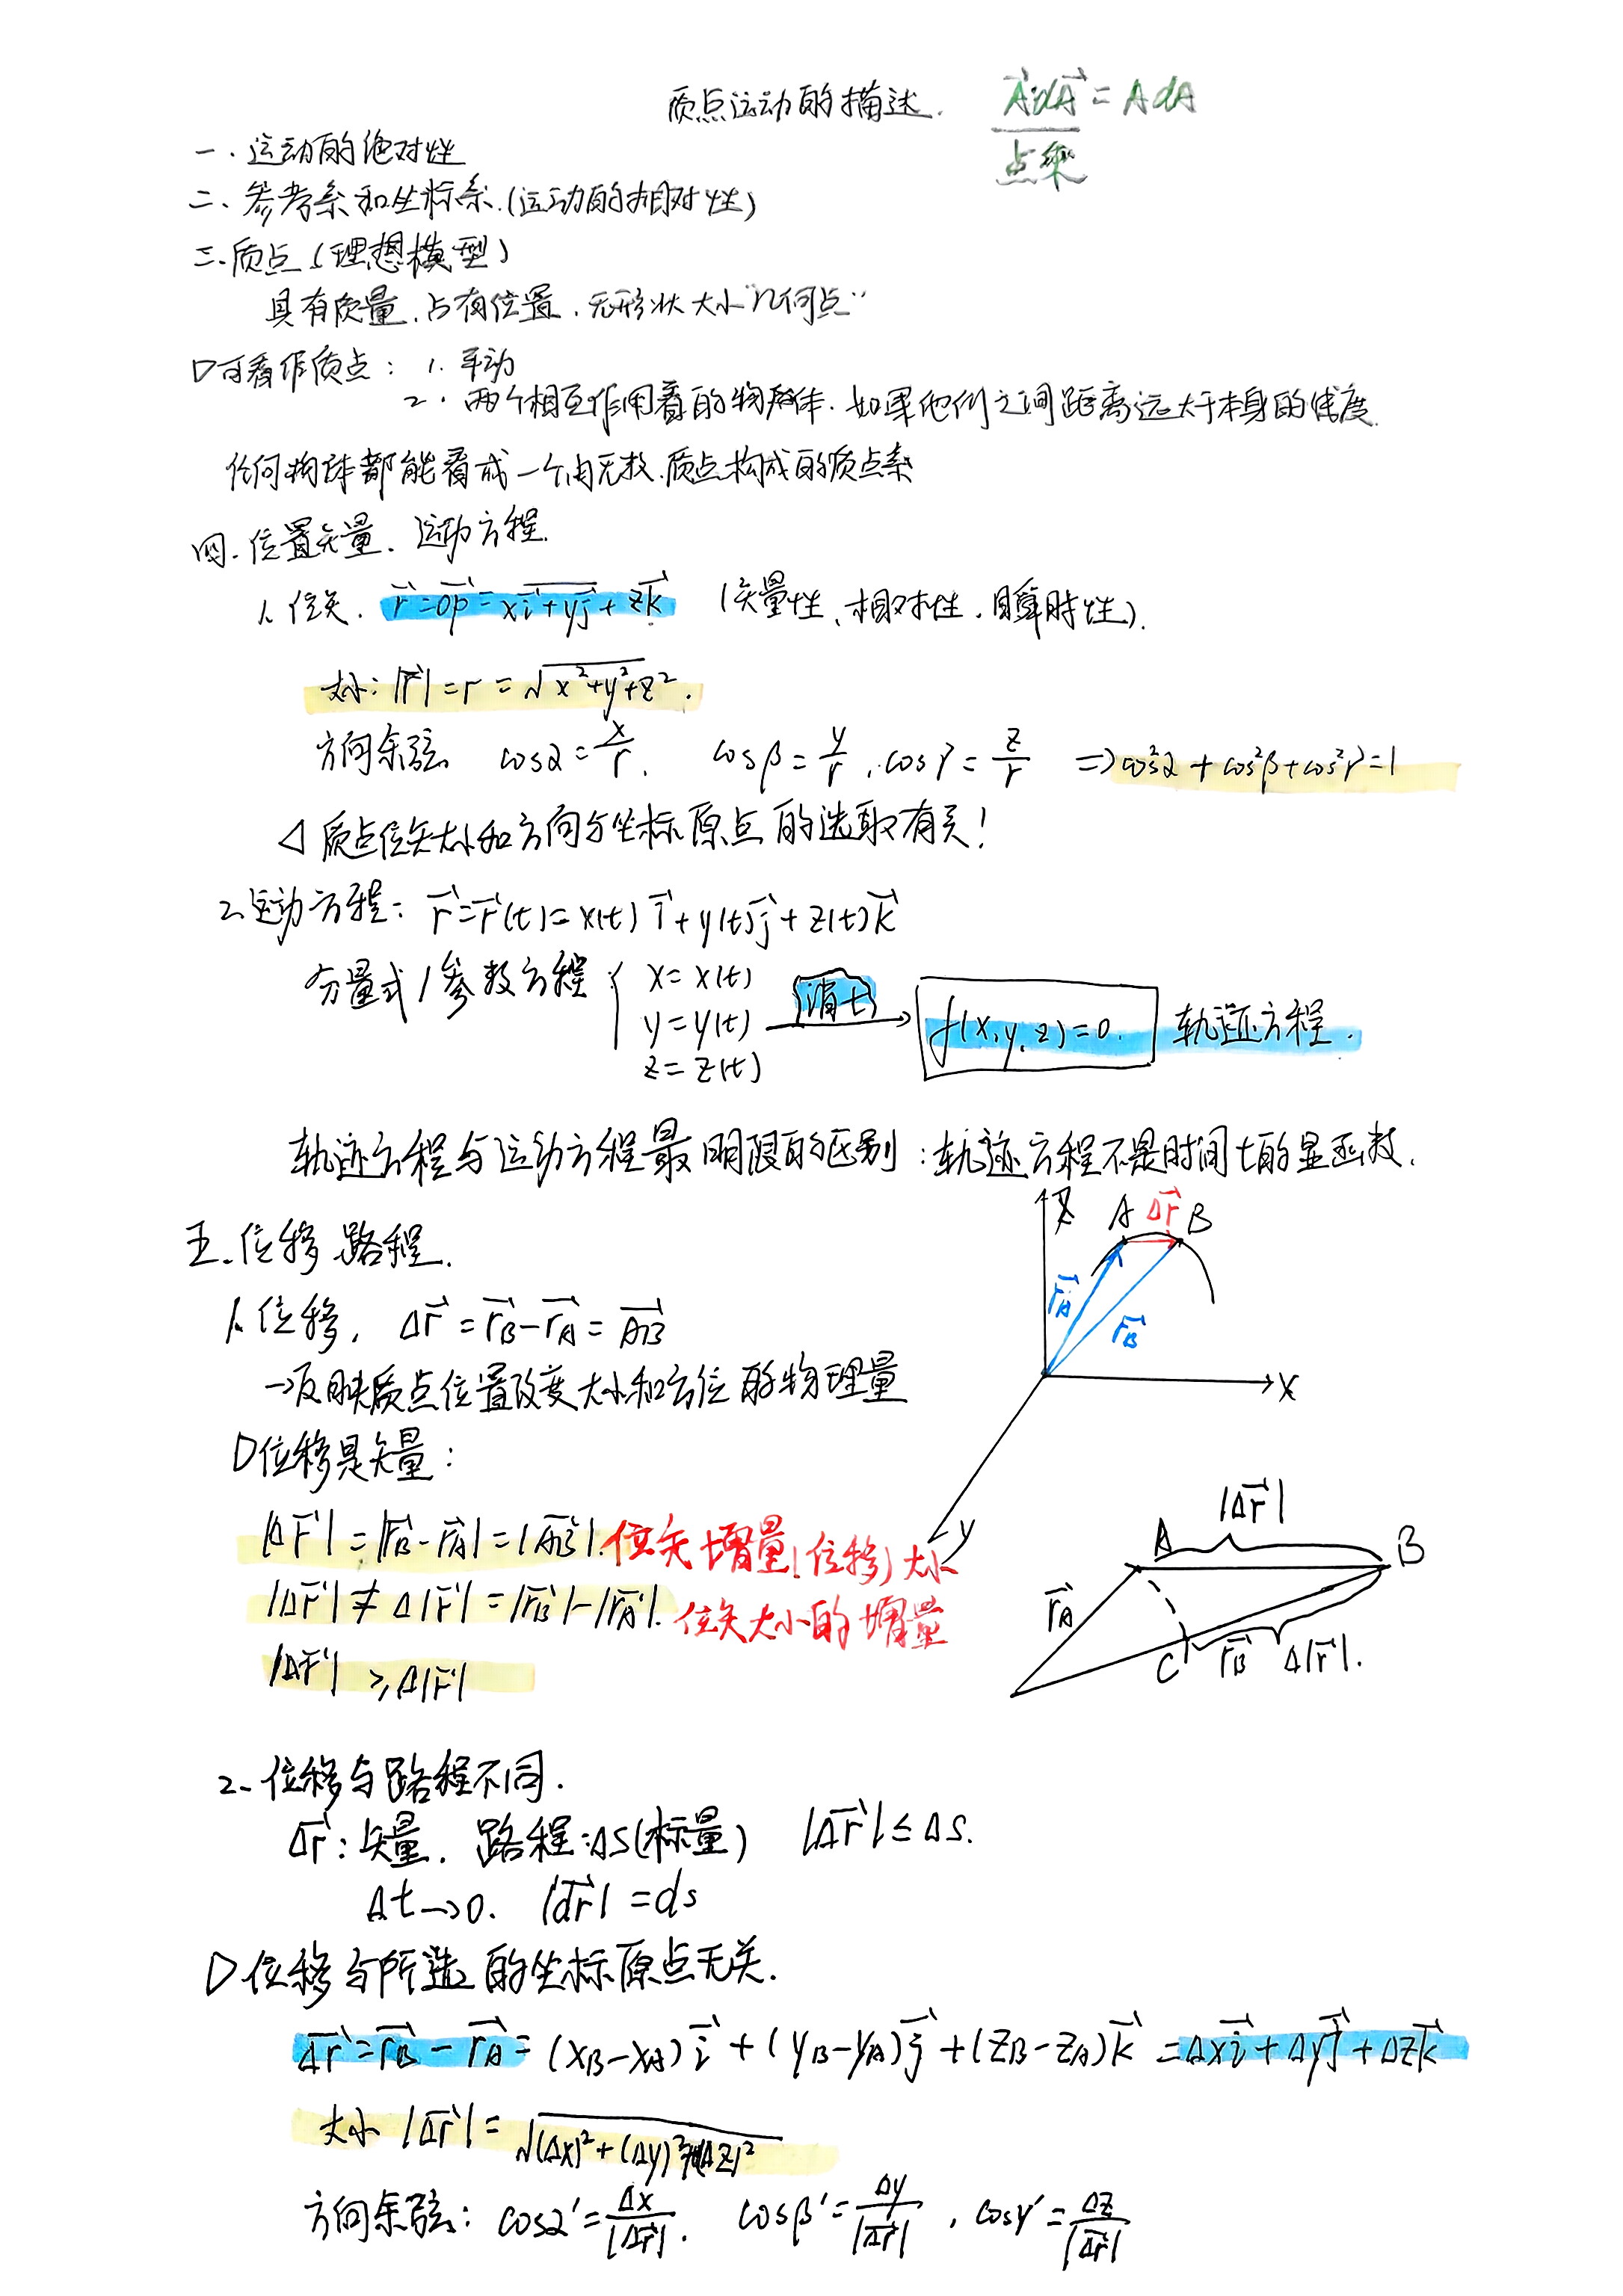 质点运动的描述.
A⃗·dA⃗ = AdA
点乘
一.运动的绝对性
二、参考系和坐标系.(运动的相对性)
三.质点(理想模型)
具有质量.占有位置.无形状大小"几何点"
▷可看作质点: 1.平动
2.两个相互作用着的物体.如果他们之间距离远大于本身的线度.
任何物体都能看成一个由无数质点构成的质点系
四.位置矢量.运动方程.
1.位矢. r⃗=op⃗=xi⃗+yj⃗+zk⃗ (矢量性、相对性.瞬时性).
大小:|r⃗|=r=√x²+y²+z².
方向余弦 cosα=x/r. cosβ=y/r, cosγ=z/r ⇒cos²α+cos²β+cos²γ=1
◁质点位矢大小和方向与坐标原点的选取有关!
2.运动方程: r⃗=r⃗(t)=x(t)i⃗+y(t)j⃗+z(t)k⃗
分量式/参数方程 { x=x(t)
y=y(t) 消t → f(x,y,z)=0. 轨迹方程.
z=z(t)
轨迹方程与运动方程最明显的区别:轨迹方程不是时间t的显函数.
五.位移 路程.
Z A Δr⃗ B
r⃗A r⃗B
X
y
1.位移, Δr⃗=r⃗B-r⃗A=AB⃗
→反映质点位置改变大小和方位的物理量
▷位移是矢量:
|Δr⃗|=|r⃗B-r⃗A|=|AB⃗|.位矢增量(位移)大小
|Δr⃗|≠Δ|r⃗|=|r⃗B|-|r⃗A|.位矢大小的增量
|Δr⃗|≥Δ|r⃗|
|Δr⃗|
A B
r⃗A
C r⃗B Δ|r⃗|.
2.位移与路程不同.
Δr⃗:矢量. 路程:ΔS(标量) |Δr⃗|≤ΔS.
Δt→0. |dr⃗|=ds
▷位移与所选的坐标原点无关.
Δr⃗=r⃗B-r⃗A=(xB-xA)i⃗+(yB-yA)j⃗+(zB-zA)k⃗=Δxi⃗+Δyj⃗+Δzk⃗
大小|Δr⃗|=√(Δx)²+(Δy)²+(Δz)²
方向余弦: cosα'=Δx/|Δr⃗|. cosβ'=Δy/|Δr⃗|, cosγ'=Δz/|Δr⃗|